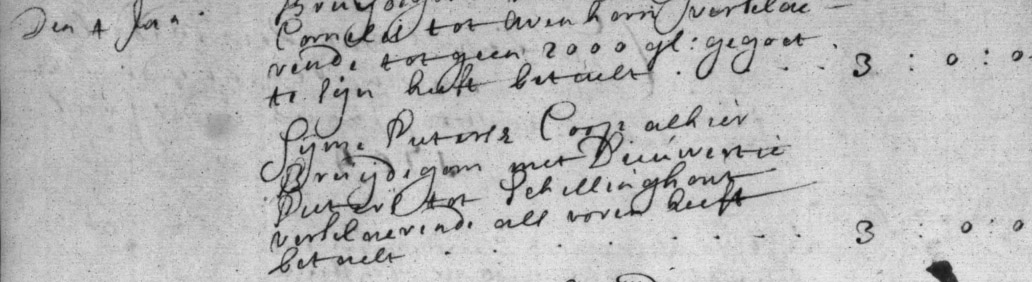 Den 4 Jan:
Bruijdigom
Cornelis tot Avenhorn verklae-
rende tot geen 2000 gl: gegoet
te sijn heeft betaelt . . . . 3 : 0 : 0
Sijme Pieters Coop alhier
Bruijdigom met Dieuwertie
Pieters tot Schellinghout
verklaerende als voren heeft
betaelt . . . . . . 3 : 0 : 0